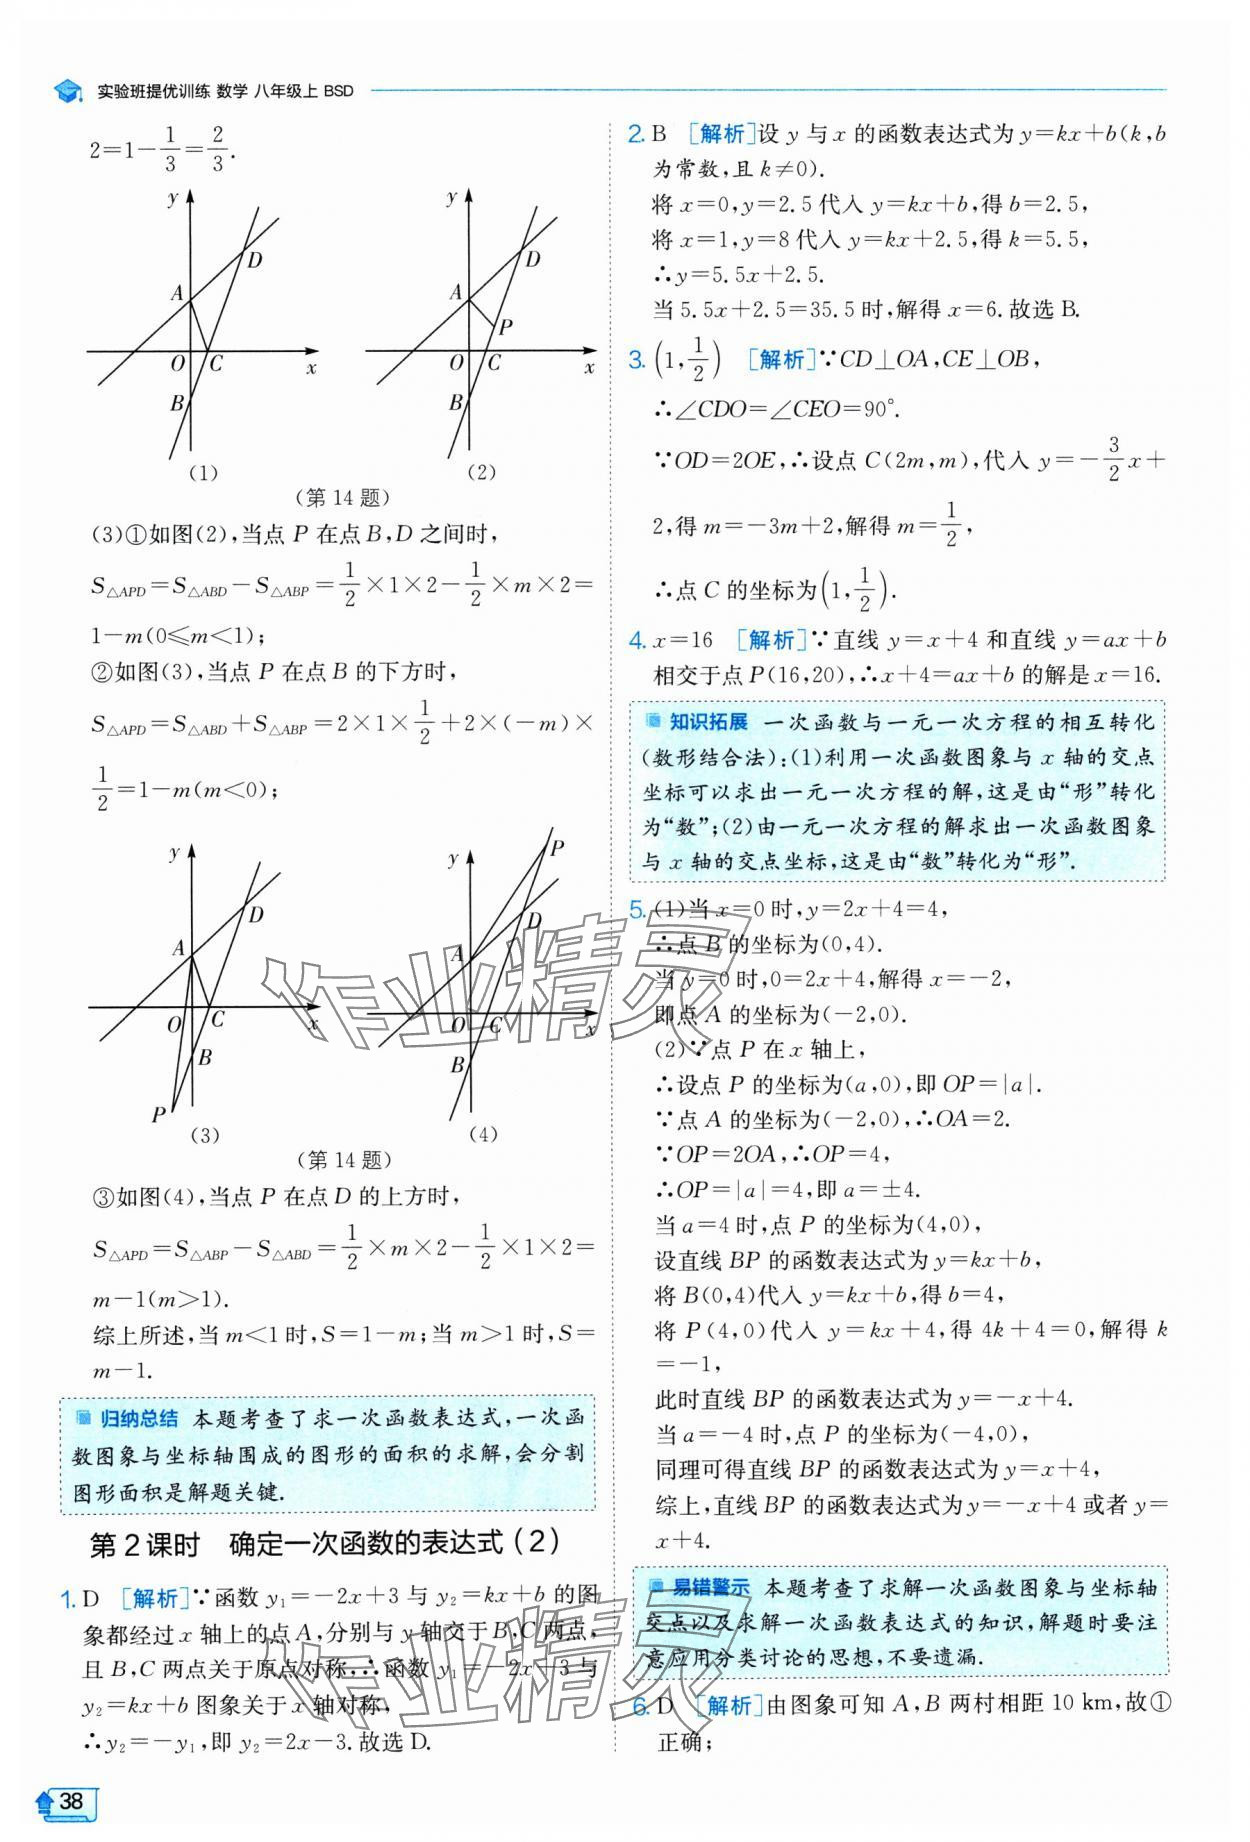 实验班提优训练 数学 八年级上 BSD
2=1-1/3=2/3.
y
D
A
O C x
B
(1)
y
D
A
P
O C x
B
(2)
(第14题)
(3)①如图(2),当点 P 在点B,D 之间时,
S△APD=S△ABD-S△ABP=1/2×1×2-1/2×m×2=
1-m(0≤m<1);
②如图(3),当点 P 在点 B 的下方时,
S△APD=S△ABD+S△ABP=2×1×1/2+2×(-m)×
1/2=1-m(m<0);
y
D
A
O C x
B
P
(3)
y
P
D
A
O C x
B
(4)
(第14题)
③如图(4),当点 P 在点 D 的上方时,
S△APD=S△ABP-S△ABD=1/2×m×2-1/2×1×2=
m-1(m>1).
综上所述,当 m<1 时,S=1-m;当 m>1 时,S=
m-1.
归纳总结 本题考查了求一次函数表达式,一次函
数图象与坐标轴围成的图形的面积的求解,会分割
图形面积是解题关键.
第2课时 确定一次函数的表达式(2)
1. D [解析]∵函数 y₁=-2x+3 与 y₂=kx+b 的图
象都经过 x 轴上的点 A,分别与 y 轴交于 B,C 两点,
且 B,C 两点关于原点对称,∴函数 y₁=-2x+3 与
y₂=kx+b 图象关于 x 轴对称,
∴y₂=-y₁,即 y₂=2x-3.故选 D.
38
2. B [解析]设 y 与 x 的函数表达式为 y=kx+b(k,b
为常数,且 k≠0).
将 x=0,y=2.5 代入 y=kx+b,得 b=2.5,
将 x=1,y=8 代入 y=kx+2.5,得 k=5.5,
∴y=5.5x+2.5.
当 5.5x+2.5=35.5 时,解得 x=6.故选 B.
3. (1,1/2) [解析]∵CD⊥OA,CE⊥OB,
∴∠CDO=∠CEO=90°.
∵OD=2OE,∴设点 C(2m,m),代入 y=-3/2x+
2,得 m=-3m+2,解得 m=1/2,
∴点 C 的坐标为(1,1/2).
4. x=16 [解析]∵直线 y=x+4 和直线 y=ax+b
相交于点 P(16,20),∴x+4=ax+b 的解是 x=16.
知识拓展 一次函数与一元一次方程的相互转化
(数形结合法):(1)利用一次函数图象与 x 轴的交点
坐标可以求出一元一次方程的解,这是由“形”转化
为“数”;(2)由一元一次方程的解求出一次函数图象
与 x 轴的交点坐标,这是由“数”转化为“形”.
5. (1)当 x=0 时,y=2x+4=4,
∴点 B 的坐标为(0,4).
当 y=0 时,0=2x+4,解得 x=-2,
即点 A 的坐标为(-2,0).
(2)∵点 P 在 x 轴上,
∴设点 P 的坐标为(a,0),即 OP=|a|.
∵点 A 的坐标为(-2,0),∴OA=2.
∵OP=2OA,∴OP=4,
∴OP=|a|=4,即 a=±4.
当 a=4 时,点 P 的坐标为(4,0),
设直线 BP 的函数表达式为 y=kx+b,
将 B(0,4)代入 y=kx+b,得 b=4,
将 P(4,0)代入 y=kx+4,得 4k+4=0,解得 k
=-1,
此时直线 BP 的函数表达式为 y=-x+4.
当 a=-4 时,点 P 的坐标为(-4,0),
同理可得直线 BP 的函数表达式为 y=x+4,
综上,直线 BP 的函数表达式为 y=-x+4 或者 y=
x+4.
易错警示 本题考查了求解一次函数图象与坐标轴
交点以及求解一次函数表达式的知识,解题时要注
意应用分类讨论的思想,不要遗漏.
6. D [解析]由图象可知 A,B 两村相距 10 km,故①
正确;
作业精灵
作业精灵